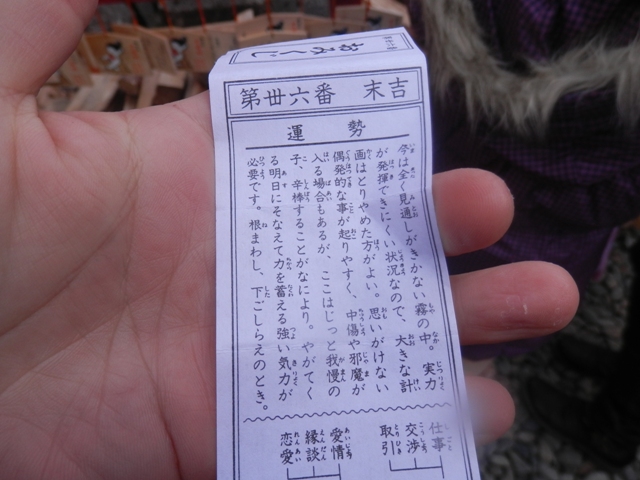 おみくじ
第丗六番 末吉
運勢
今は全く見通しがきかない霧の中。実力
が発揮できにくい状況なので、大きな計
画はとりやめた方がよい。思いがけない
偶発的な事が起りやすく、中傷や邪魔が
入る場合もあるが、ここはじっと我慢の
子、辛棒することがなにより。やがてく
る明日にそなえて力を蓄える強い気力が
必要です。根まわし、下ごしらえのとき。
仕事
交渉
取引
愛情
縁談
恋愛